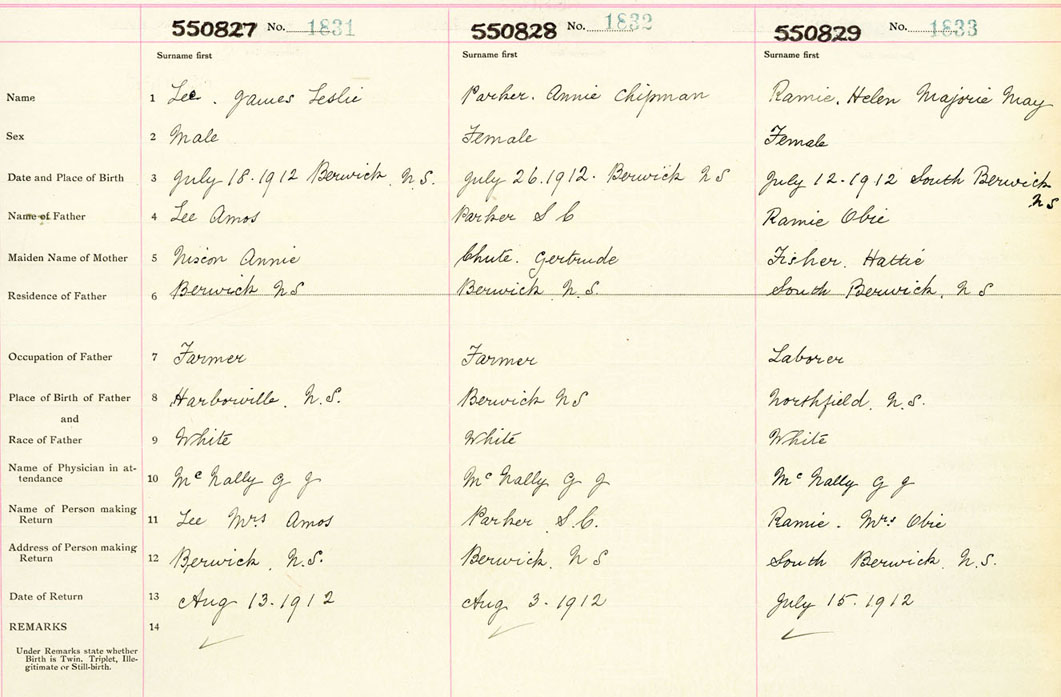 550827 No. 1831 550828 No. 1832 550829 No. 1833
Surname first Surname first Surname first
Name 1 Lee. James Leslie Parker. Annie Chipman Ramie. Helen Majorie May
Sex 2 Male Female Female
Date and Place of Birth 3 July 18.1912 Berwick, N.S. July 26.1912. Berwick N S July 12-1912 South Berwick
N S
Name of Father 4 Lee Amos Parker S C Ramie Obie
Maiden Name of Mother 5 Nixon Annie Chute. Gertrude Fisher. Hattie
Residence of Father 6 Berwick NS Berwick N.S. South Berwick, N S
Occupation of Father 7 Farmer Farmer Laborer
Place of Birth of Father 8 Harborville, N.S. Berwick NS Northfield, N.S.
and
Race of Father 9 White White White
Name of Physician in at-
tendance 10 McNally G J McNally G J McNally G J
Name of Person making
Return 11 Lee Mrs Amos Parker S.C. Ramie. Mrs Obie
Address of Person making
Return 12 Berwick, N.S. Berwick, N S South Berwick, N.S.
Date of Return 13 Aug 13.1912 Aug 3.1912 July 15.1912
REMARKS 14
Under Remarks state whether
Birth is Twin. Triplet, Ille-
gitimate or Still-birth.